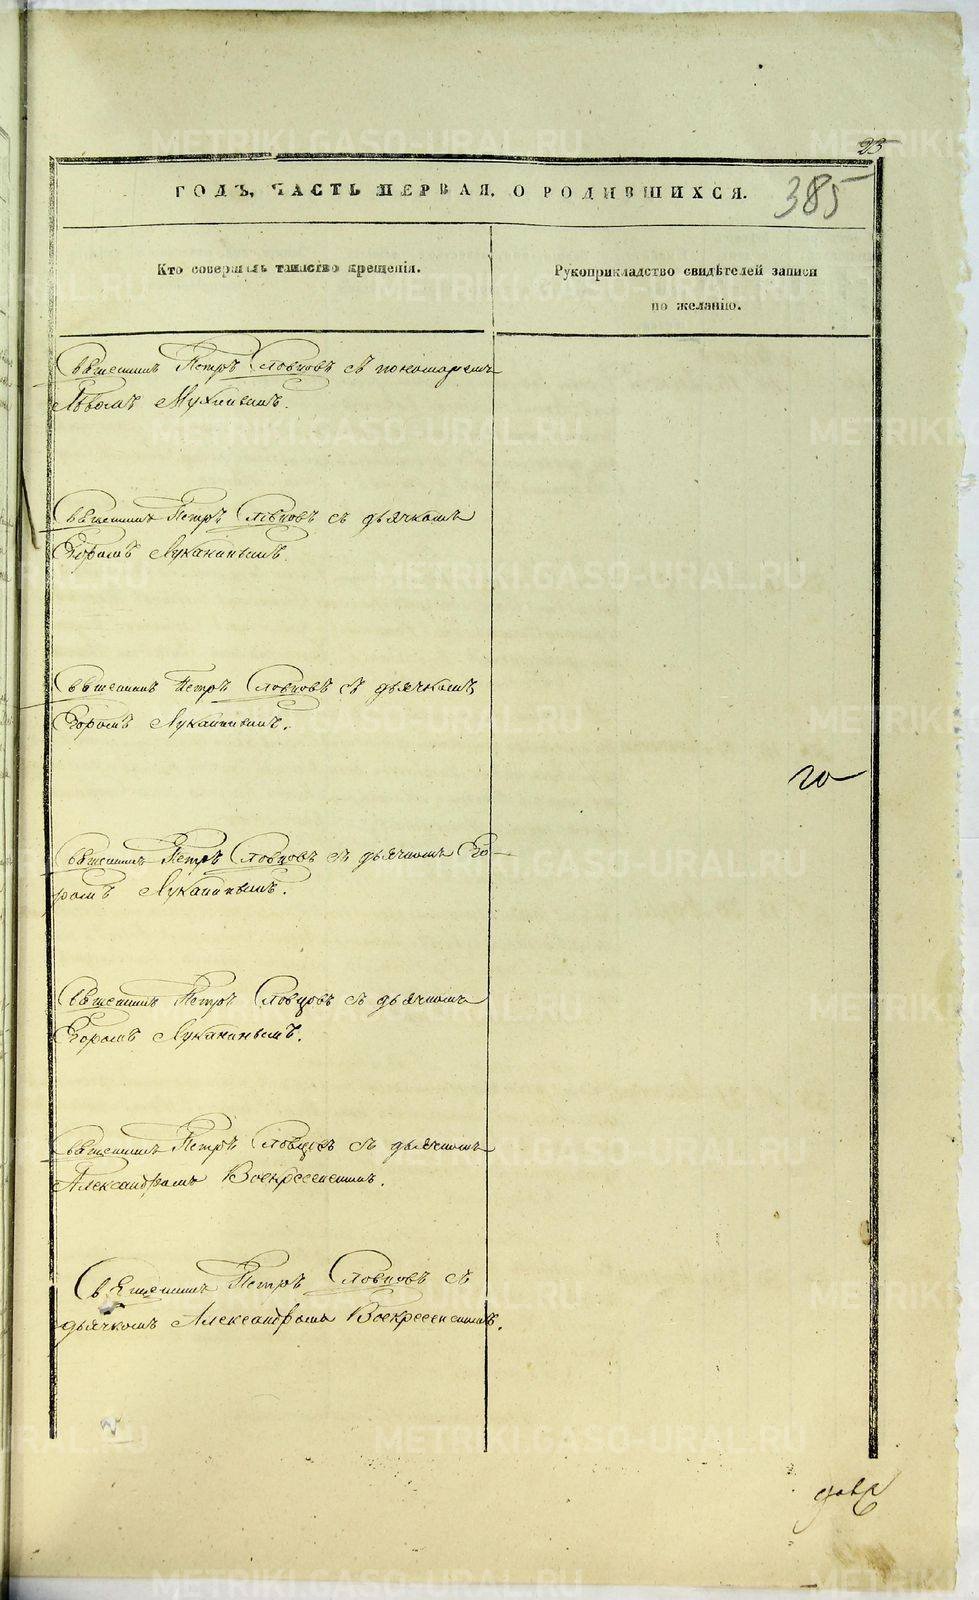 23
ГОДЪ, ЧАСТЬ ПЕРВАЯ, О РОДИВШИХСЯ.
385
Кто совершалъ таинство крещенія.
Рукоприкладство свидѣтелей записи
по желанію.
Священникъ Петръ Словцовъ съ пономаремъ
Львомъ Мухинымъ.
Священникъ Петръ Словцовъ съ дьячкомъ
Егоромъ Луканинымъ.
Священникъ Петръ Словцовъ съ дьячкомъ
Егоромъ Луканинымъ.
Священникъ Петръ Словцовъ съ дьячкомъ Его-
ромъ Луканинымъ.
Священникъ Петръ Словцовъ съ дьячкомъ
Егоромъ Луканинымъ.
Священникъ Петръ Словцовъ съ дьячкомъ
Александромъ Воскресенскимъ.
Священникъ Петръ Словцовъ съ
дьячкомъ Александромъ Воскресенскимъ.
METRIKI.GASO-URAL.RU